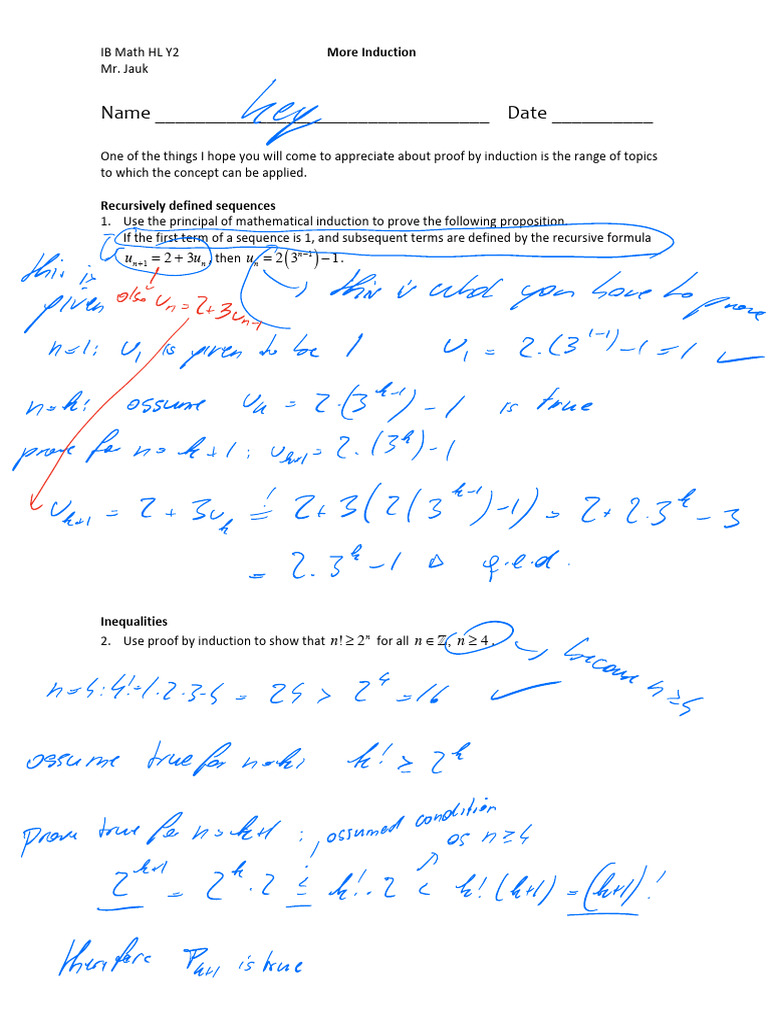 IB Math HL Y2 More Induction
Mr. Jauk
Name ____________________________________ Date ___________
hey
One of the things I hope you will come to appreciate about proof by induction is the range of topics
to which the concept can be applied.
Recursively defined sequences
1. Use the principal of mathematical induction to prove the following proposition.
If the first term of a sequence is 1, and subsequent terms are defined by the recursive formula
uₙ₊₁ = 2 + 3uₙ, then uₙ = 2(3ⁿ⁻¹) − 1.
this is given
also uₙ = 2 + 3uₙ₋₁
this is what you have to prove
n=1: u₁ is given to be 1 u₁ = 2·(3¹⁻¹) − 1 = 1 ✓
n=k: assume uₖ = 2·(3ᵏ⁻¹) − 1 is true
prove for n = k+1: uₖ₊₁ = 2·(3ᵏ) − 1
uₖ₊₁ = 2 + 3uₖ = 2 + 3(2(3ᵏ⁻¹) − 1) = 2 + 2·3ᵏ − 3
= 2·3ᵏ − 1 q.e.d.
Inequalities
2. Use proof by induction to show that n! ≥ 2ⁿ for all n ∈ ℤ, n ≥ 4.
because n ≥ 4
n=4: 4! = 1·2·3·4 = 24 > 2⁴ = 16 ✓
assume true for n=k: k! ≥ 2ᵏ
prove true for n=k+1: assumed condition
as n ≥ 4
2ᵏ⁺¹ = 2ᵏ·2 ≤ k!·2 < k!(k+1) = (k+1)!
therefore Pₖ₊₁ is true